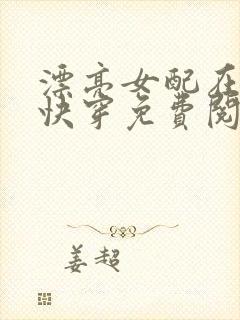 漂亮女配在
快穿免費閱
姜超